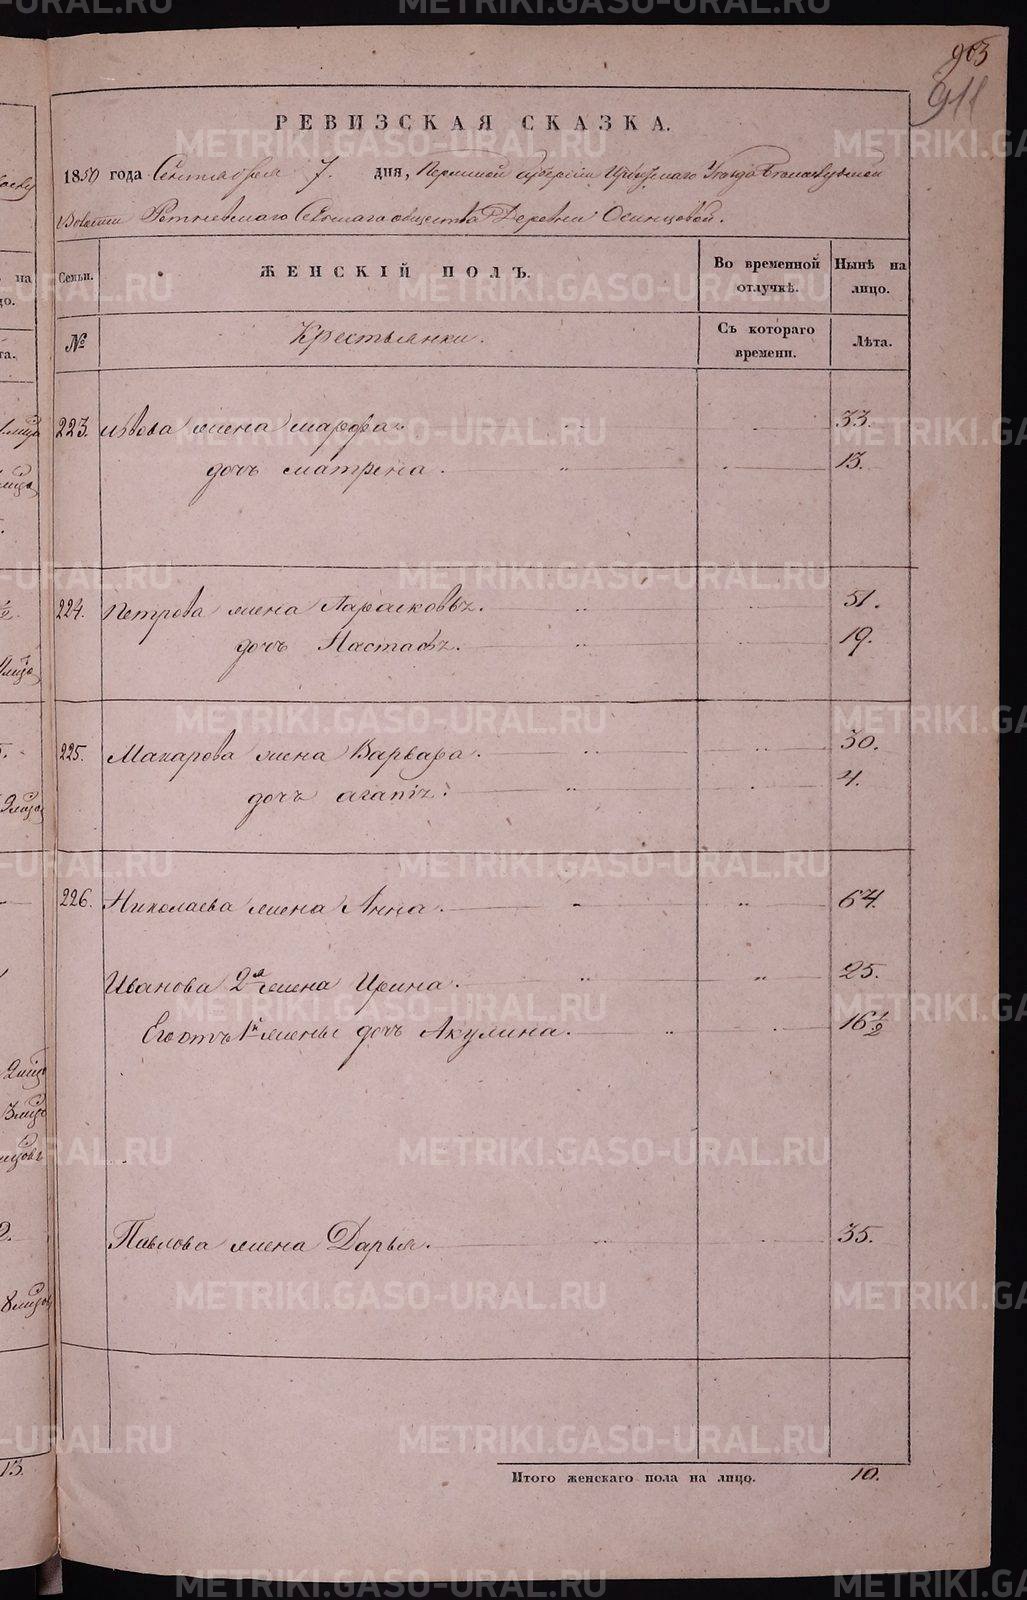 903
911
РЕВИЗСКАЯ СКАЗКА.
1850 года Сентября 7. дня, Пермской Губернии Ирбитскаго Уезда
Волости Ретневскаго Сельскаго общества Деревни Осинцовой.
Семьи. ЖЕНСКІЙ ПОЛЪ. Во временной отлучкѣ. Нынѣ на лицо.
№ Крестьянки. Съ котораго времени. Лѣта.
223. жена марфа 33.
дочь матрена 13.
224. Петрова жена Парасковья 51.
дочь Настасья 19.
225. Макарова жена Варвара 30.
дочь агапья 4.
226. Николаева жена Анна 64.
Иванова 2я жена Ирина 25.
Его отъ 1й жены дочь Акулина 16 1/2
Павлова жена Дарья 35.
Итого женскаго пола на лицо. 10.
METRIKI.GASO-URAL.RU